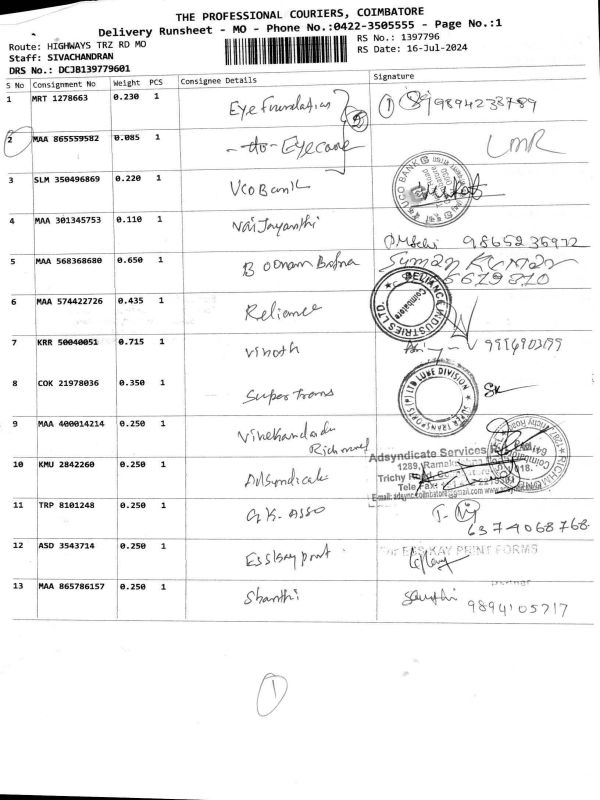 THE PROFESSIONAL COURIERS, COIMBATORE
Delivery Runsheet - MO - Phone No.:0422-3505555 - Page No.:1
Route: HIGHWAYS TRZ RD MO
RS No.: 1397796
Staff: SIVACHANDRAN
RS Date: 16-Jul-2024
DRS No.: DCJB139779601
S No Consignment No Weight PCS Consignee Details Signature
1 MRT 1278663 0.230 1 Eye Foundation 1 9894233789
2 MAA 865559582 0.085 1 -do- Eyecare LMR
3 SLM 350496869 0.220 1 UCO Bank
UCO BANK
4 MAA 301345753 0.110 1 Vaijayanthi 9865236972
5 MAA 568368680 0.650 1 Suman Kumar
6679870
6 MAA 574422726 0.435 1 Reliance
RELIANCE INDUSTRIES LTD.
Coimbatore
7 KRR 50040051 0.715 1 Vinoth
8 COK 21978036 0.350 1 Super Trans SK
SUPER TRANSPORTS (P) LTD LUBE DIVISION
9 MAA 400014214 0.250 1 Richmond
10 KMU 2842260 0.250 1 Adsyndicate
Adsyndicate Services
1289, Ramakrishna
Trichy Road,
11 TRP 8101248 0.250 1 G.K. Asso
6374068768
12 ASD 3543714 0.250 1 Esskay print
ESS KAY PRINT FORMS
13 MAA 865786157 0.250 1 Shanthi 9894105717
1